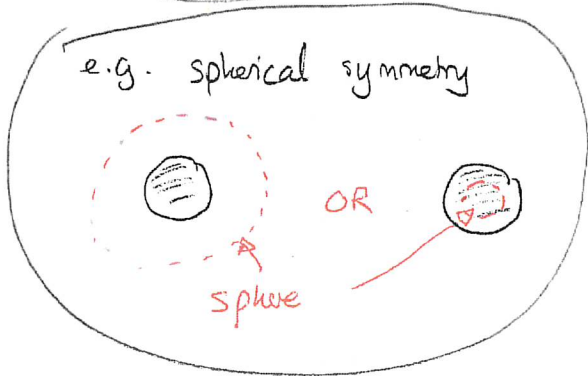 e.g. spherical symmetry
OR
sphere